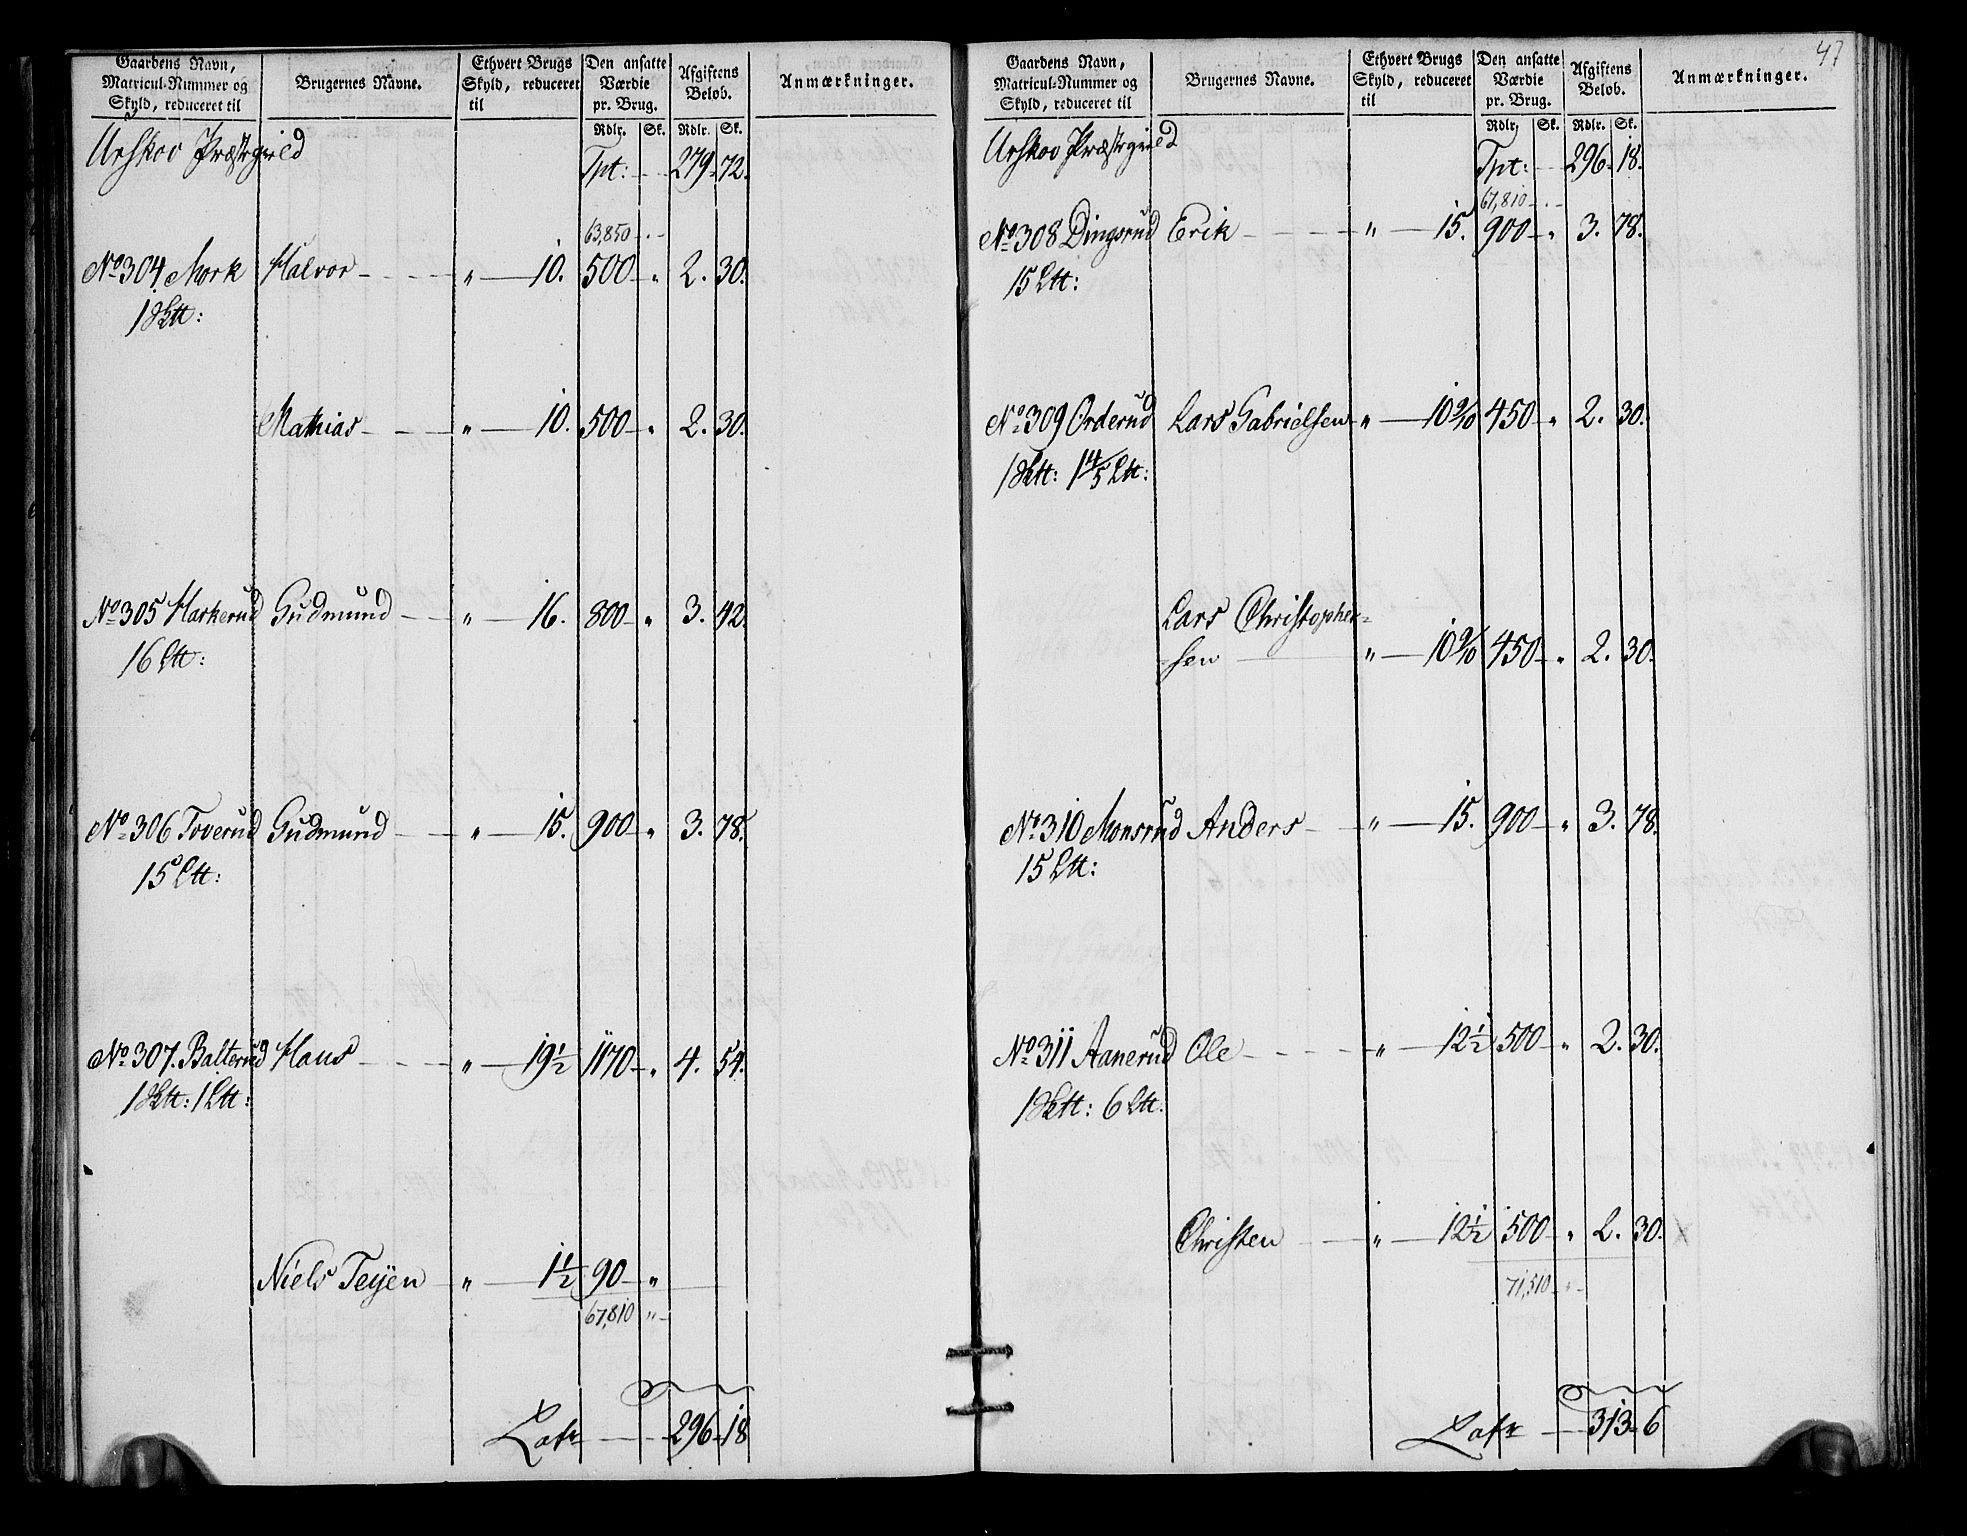 Gaardens Navn, Matricul-Nummer og Skyld, reduceret til | Brugernes Navne. | Ethvert Brugs Skyld, reduceret til | Den ansatte Værdie pr. Brug. | Afgiftens Beløb. | Anmærkninger.
Rdlr. | Sk. | Rdlr. | Sk.
Urskov Præstegield Tpt: 279. 72.
63,850
No 304. Mork Halvor " 10. 500 " 2. 30.
1 Sktt:
Mathias " 10. 500 " 2. 30.
No 305 Harkerud Gudmund " 16. 800 " 3. 42.
16 Ltt:
No 306 Toverud Gudmund " 15. 900 " 3. 78.
15 Ltt:
No 307. Balterud Hans " 19½ 1170 " 4. 54.
1 Sktt: 1 Ltt:
Niels Teyen " 1½ 90 "
67,810 "
Latr 296 18
47
Gaardens Navn, Matricul-Nummer og Skyld, reduceret til | Brugernes Navne. | Ethvert Brugs Skyld, reduceret til | Den ansatte Værdie pr. Brug. | Afgiftens Beløb. | Anmærkninger.
Rdlr. | Sk. | Rdlr. | Sk.
Urskov Præstegield Tpt: 296. 18.
67,810
No 308 Dingsrud Erik " 15. 900 " 3. 78.
15 Ltt:
No 309 Orderud Lars Gabrielsen " 10 9/10 450 " 2. 30.
1 Sktt: 1 4/5 Ltt:
Lars Christopher=
sen " 10 9/10 450 " 2. 30.
No 310 Monsrud Anders " 15. 900 " 3. 78.
15 Ltt:
No 311 Aanerud Ole " 12½ 500 " 2. 30.
1 Sktt: 6 Ltt:
Christen " 12½ 500 " 2. 30.
71,510
Latr 313 6